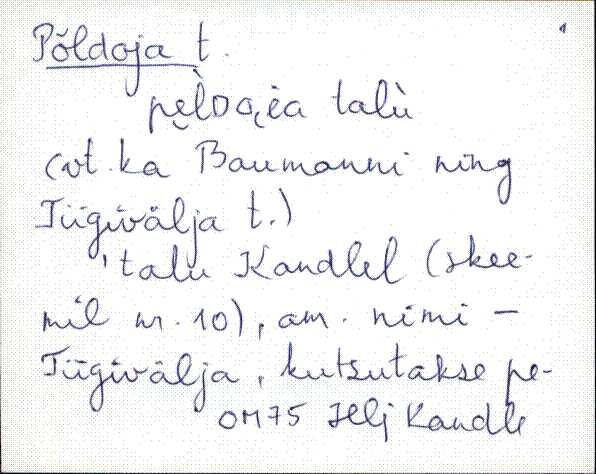 Põldoja t.
pe̮l̀Do̬i̯a talù
(vt. ka Baumanni ning
Tiigivälja t.)
'talu Kandlel (skee-
mil nr. 10), am. nimi –
Tiigivälja, kutsutakse pe-
OM75 Hlj Kandle